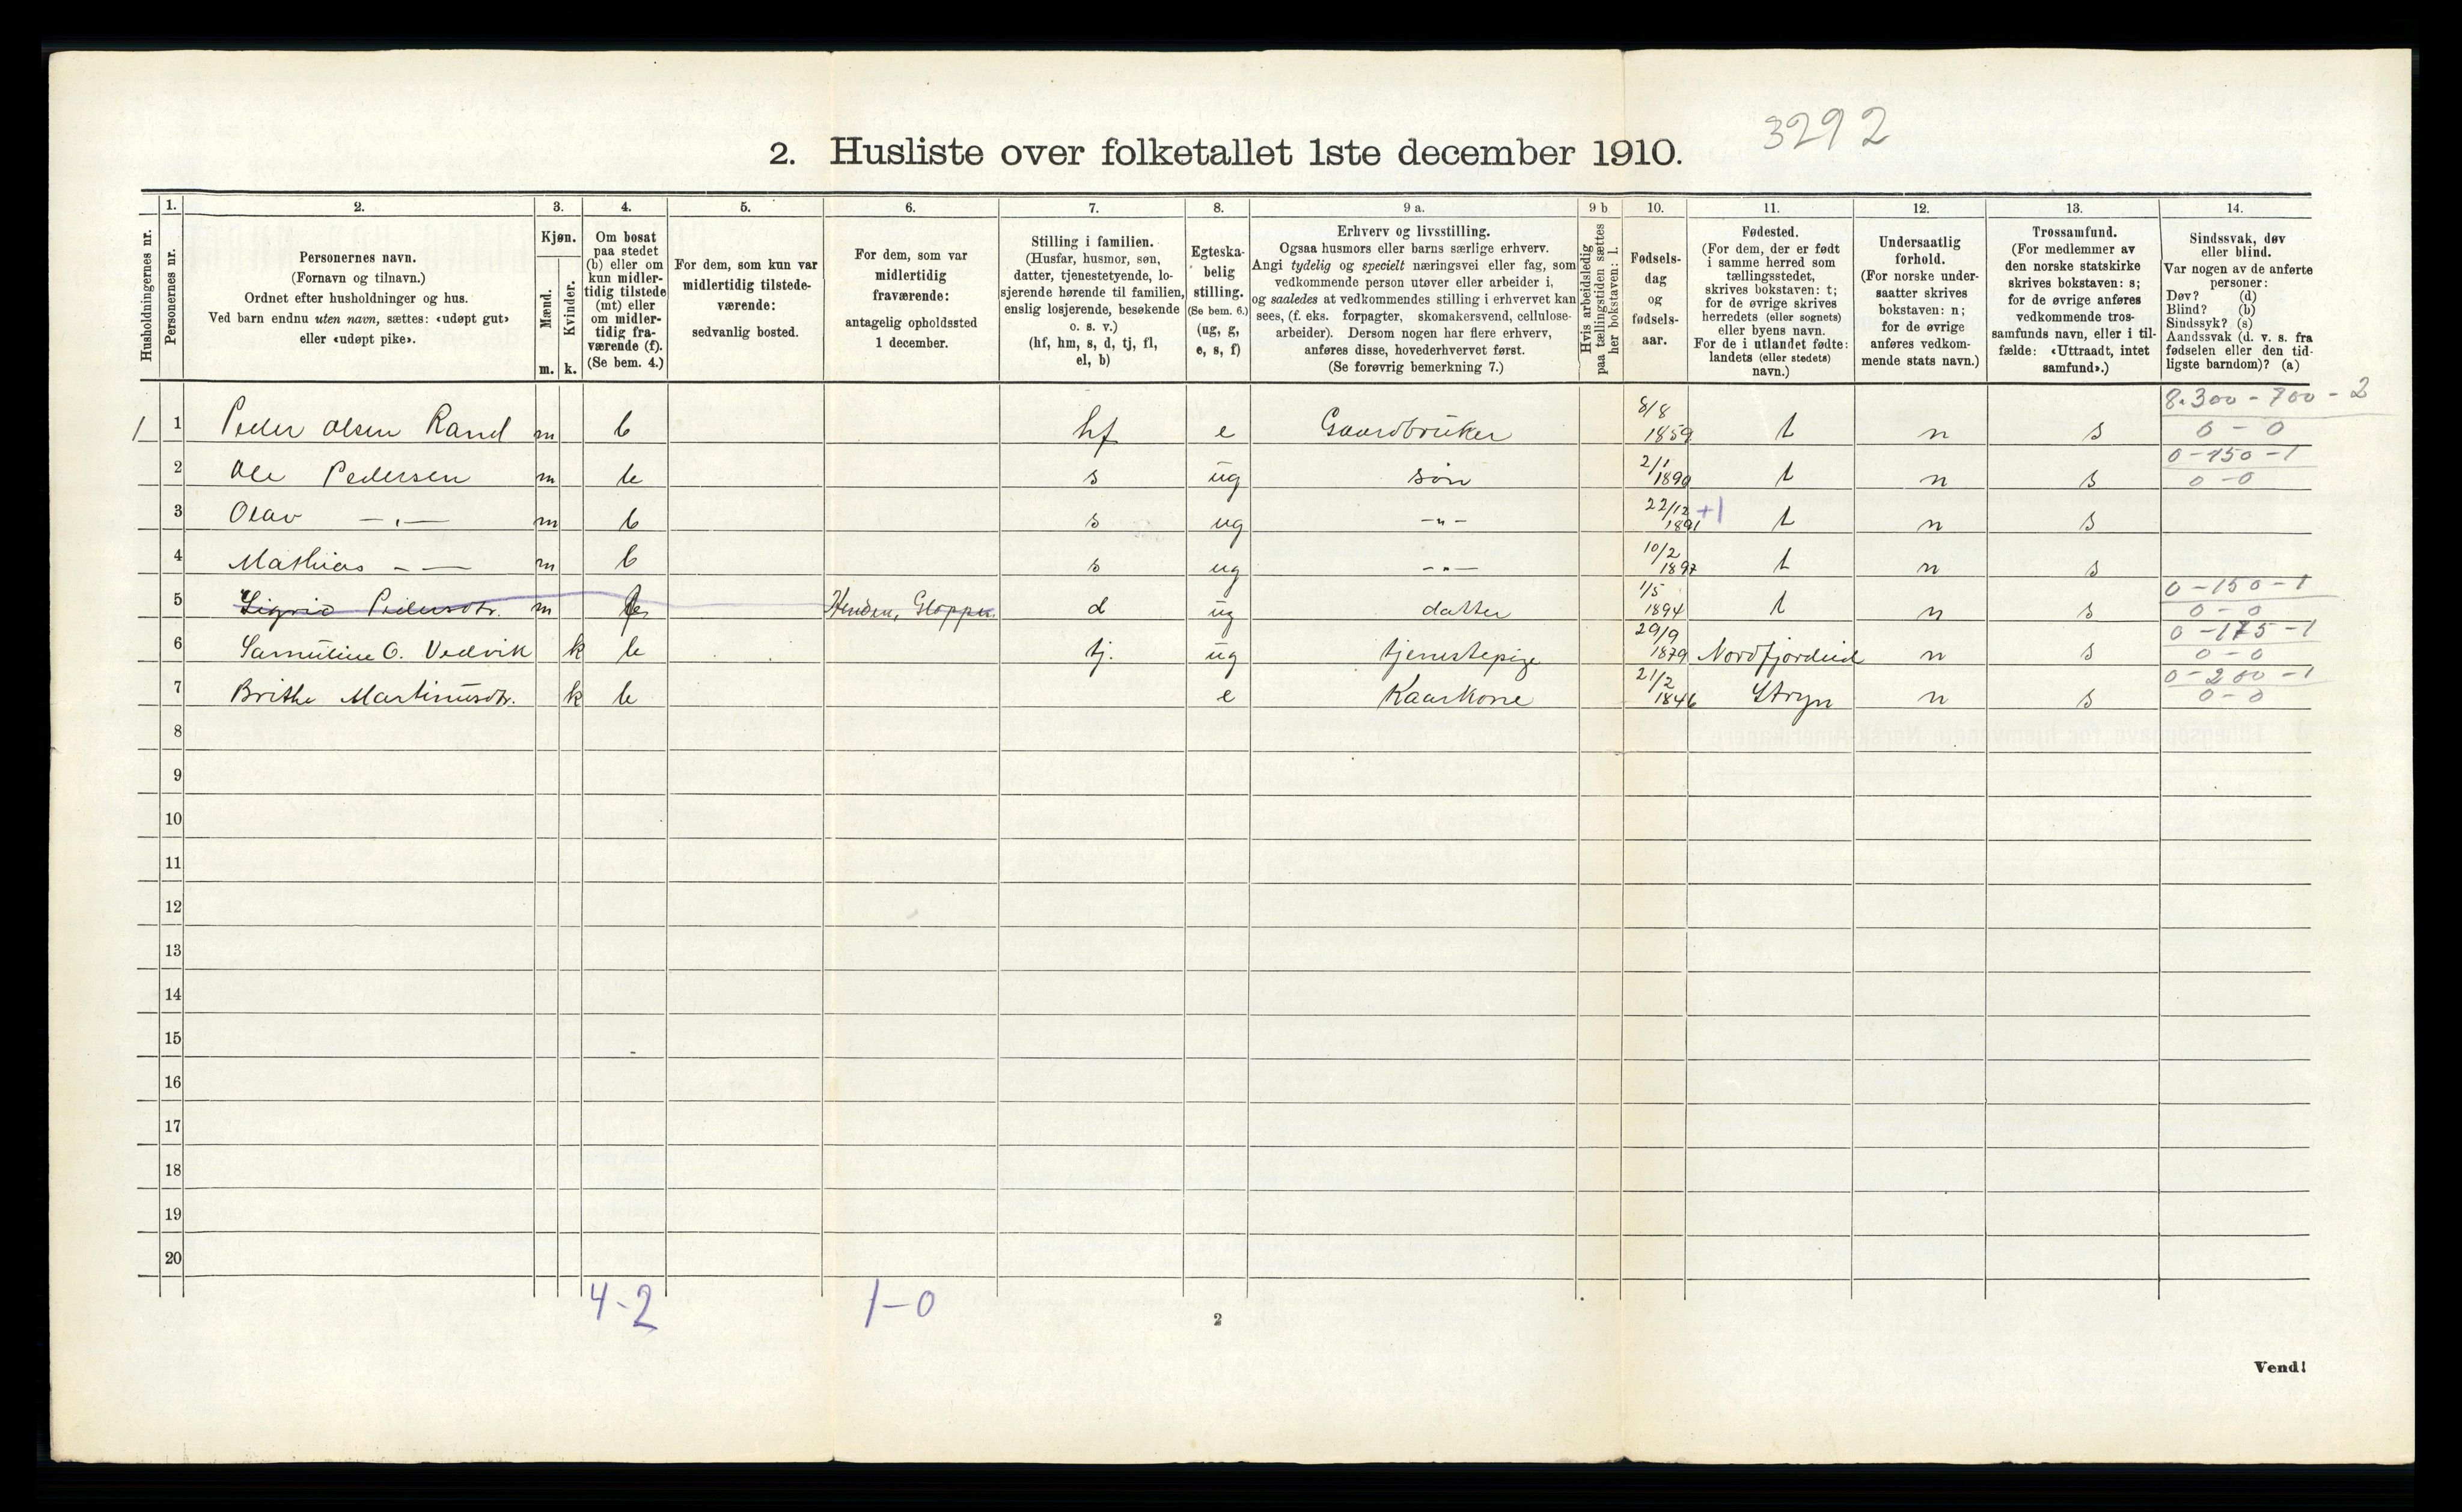 3292
2. Husliste over folketallet 1ste december 1910.
Husholdningernes nr.
1. Personernes nr.
2. Personernes navn.
(Fornavn og tilnavn.)
Ordnet efter husholdninger og hus.
Ved barn endnu uten navn, sættes: «udøpt gut»
eller «udøpt pike».
3. Kjøn.
Mænd. m.
Kvinder. k.
4. Om bosat
paa stedet
(b) eller om
kun midler-
tidig tilstede
(mt) eller
om midler-
tidig fra-
værende (f).
(Se bem. 4.)
5. For dem, som kun var
midlertidig tilstede-
værende:
sedvanlig bosted.
6. For dem, som var
midlertidig
fraværende:
antagelig opholdssted
1 december.
7. Stilling i familien.
(Husfar, husmor, søn,
datter, tjenestetyende, lo-
sjerende hørende til familien,
enslig losjerende, besøkende
o. s. v.)
(hf, hm, s, d, tj, fl,
el, b)
8. Egteska-
belig
stilling.
(Se bem. 6.)
(ug, g,
e, s, f)
9 a. Erhverv og livsstilling.
Ogsaa husmors eller barns særlige erhverv.
Angi tydelig og specielt næringsvei eller fag, som
vedkommende person utøver eller arbeider i,
og saaledes at vedkommendes stilling i erhvervet kan
sees, (f. eks. forpagter, skomakersvend, cellulose-
arbeider). Dersom nogen har flere erhverv,
anføres disse, hovederhvervet først.
(Se forøvrig bemerkning 7.)
9 b Hvis arbeidsledig
paa tællingstiden sættes
her bokstaven: l.
10. Fødsels-
dag
og
fødsels-
aar.
11. Fødested.
(For dem, der er født
i samme herred som
tællingsstedet,
skrives bokstaven: t;
for de øvrige skrives
herredets (eller sognets)
eller byens navn.
For de i utlandet fødte:
landets (eller stedets)
navn.)
12. Undersaatlig
forhold.
(For norske under-
saatter skrives
bokstaven: n;
for de øvrige
anføres vedkom-
mende stats navn.)
13. Trossamfund.
(For medlemmer av
den norske statskirke
skrives bokstaven: s;
for de øvrige anføres
vedkommende tros-
samfunds navn, eller i til-
fælde: «Uttraadt, intet
samfund».)
14. Sindssvak, døv
eller blind.
Var nogen av de anførte
personer:
Døv? (d)
Blind? (b)
Sindssyk? (s)
Aandssvak (d. v. s. fra
fødselen eller den tid-
ligste barndom)? (a)
1 1 Peder Olsen Rand m b hf e Gaardbruker 8/8 1859 t n s 8.300 - 700 - 2 0 - 0
2 Ole Pedersen m b s ug søn 2/1 1890 t n s 0 - 150 - 1 0 - 0
3 Olav — " — m b s ug - " - 22/12 1891 +1 t n s
4 Mathias - — m b s ug - " - 10/2 1897 t n s
5 Sigrid Pedersdtr. m Henden, Gloppen d ug datter 1/5 1894 t n s 0 - 150 - 1 0 - 0
6 Samuline O. Vedvik k b tj. ug tjenestepige 29/9 1879 Nordfjordeid n s 0 - 175 - 1 0 - 0
7 Brithe Martinusdtr. k b e Kaarkone 21/2 1846 Stryn n s 0 - 200 - 1 0 - 0
8
9
10
11
12
13
14
15
16
17
18
19
20
4 - 2 1 - 0
2
Vend!